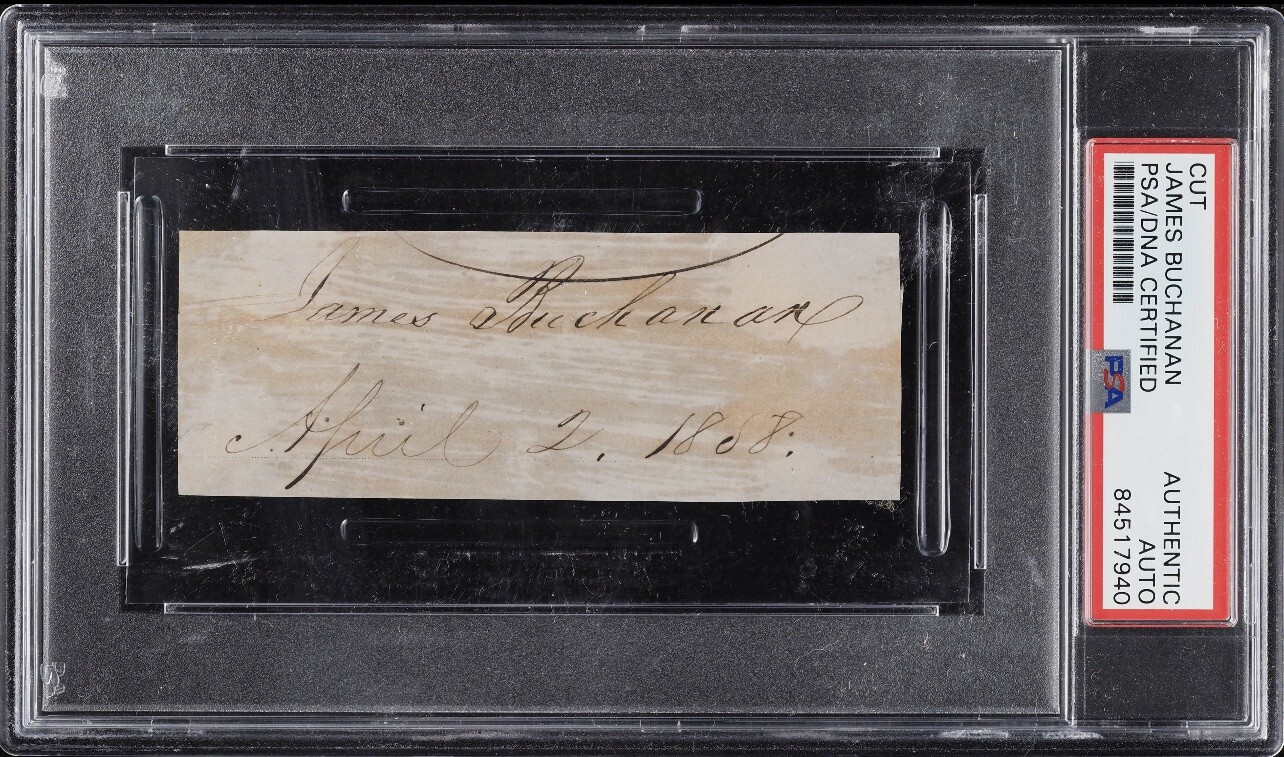 James Buchanan
April 2, 1858.
CUT
JAMES BUCHANAN AUTHENTIC
PSA/DNA CERTIFIED AUTO
84517940
PSA